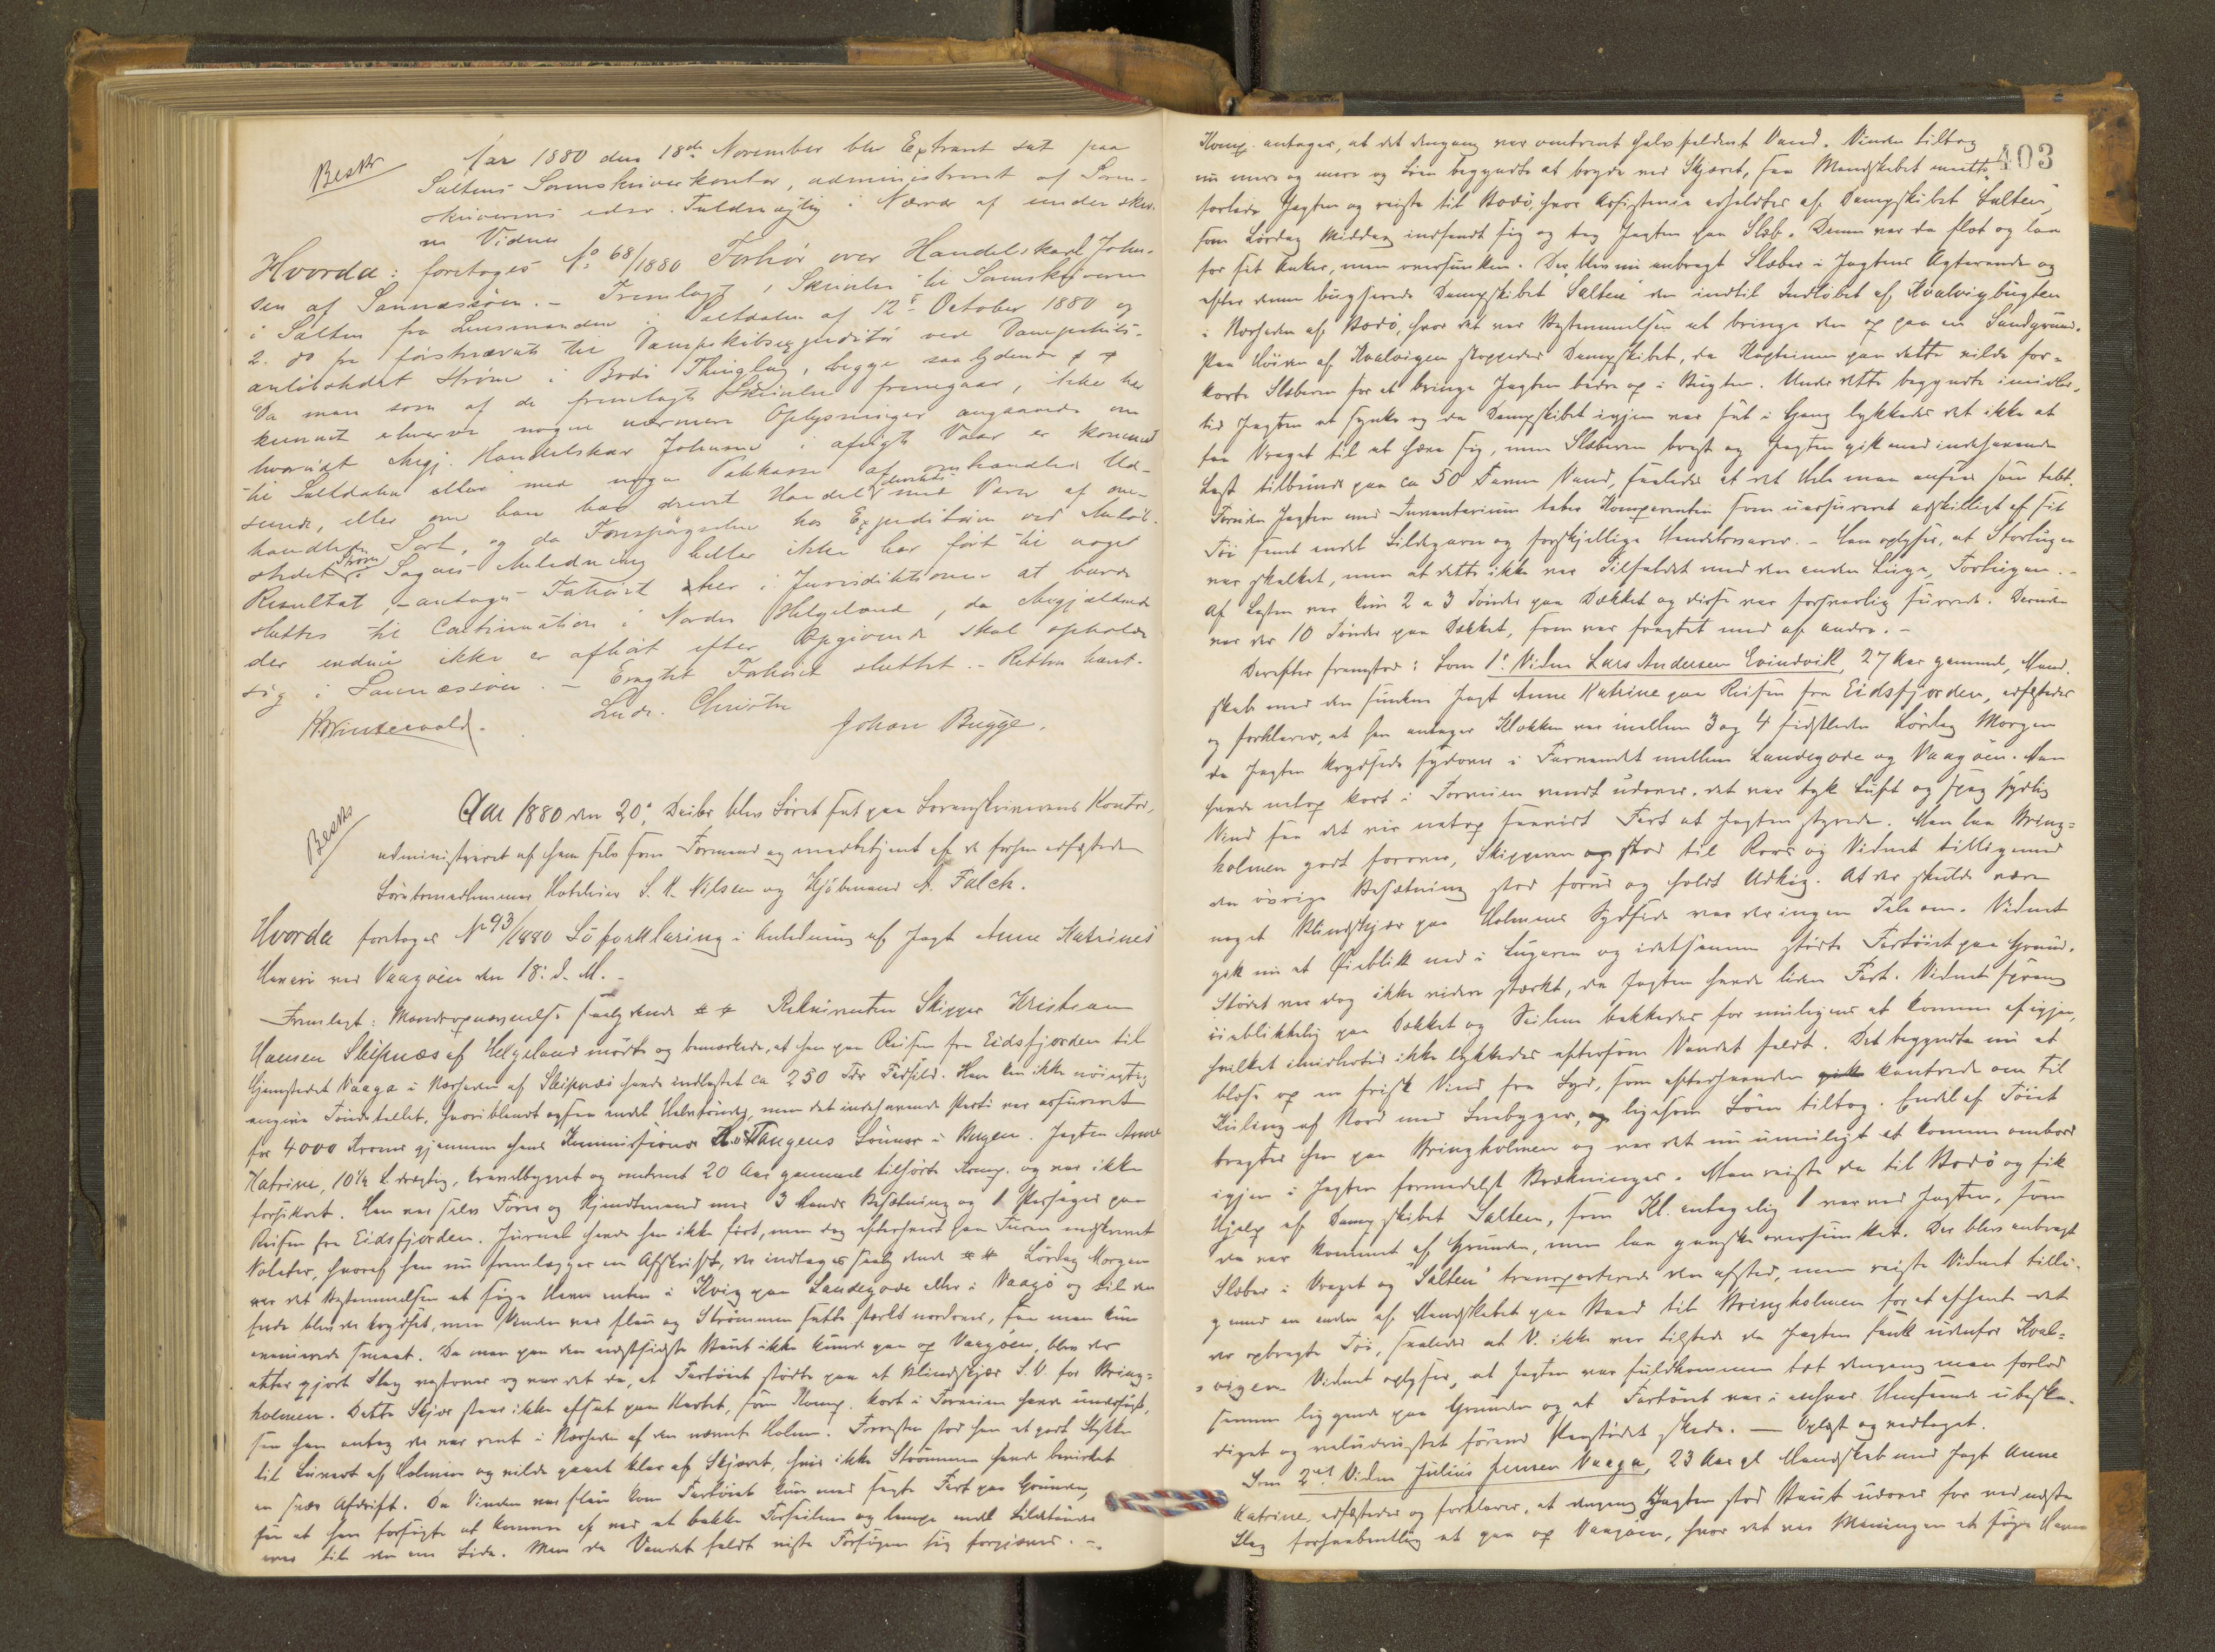 Beskr
Aar 1880 den 18de November blev Extraret sat paa
Saltens Sorenskriverkontor, administreret af Soren-
skriverens edsv. Fuldmægtig i Nærvær af underskrev-
ne Vidner
Hvorda: foretoges No 68/1880 Forhør over Handelskarl Johan-
sen af Sannæssøen. - Fremlagt 1 Skrivelse til Sorenskriveren
i Salten fra Lensmanden i Saltdalen af 12te October 1880 og
2. do fra førstnævnte til Dampskibsexpeditør ved Dampskibs-
anløbstedet Strøm i Bodø Thinglag, begge saalydende # #
Da man som af de fremlagte Skrivelser fremgaar, ikke har
kunnet erhverve nogen nærmere Oplysninger angaaende om
hvorvidt Angj. Handelskar Johansen i afvigte Vaar er kommet
til Saltdalen eller med nogen Pakkasse af omhandlede Ud-
seende, eller om han har drevet Handel dersteds med Varer af om-
handlede Sort, og da Forespørgselen hos Expeditøren ved Anløb-
stedet Strøm i Sagens Anledning heller ikke har ført til noget
Resultat, - antages - Forhøret her i Jurisdiktionen at burde
sluttes til Continuation i Nordre Helgeland, da Angjældende
der endnu ikke er afhørt efter Opgivende skal opholde
sig i Sannæssøen. - Eragtet Forhøret sluttet. - Retten hævet.
Ludv. Christn
Johan Bugge.
Beskr
Aar 1880 den 20de Decbr blev Søret sat paa Sorenskriverens Kontor,
administreret af ham selv som Formand og medbetjent af de forhen edfæstede
Søretsmedlemmer, Hotelvier S. N. Nilsen og Kjøbmand A. Falch.
Hvorda foretoges No 93/1880 Søforklaring i Anledning af Jagt Anne Katrines
Havari ved Vaagøen den 18de d. M. -
Fremlagt: Mandsopnævnelse saalydende # # Rekvirenten Skipper Kristian
Hansen Skipnæs af Helgeland mødte og bemærkede, at han paa Reisen fra Eidsfjorden til
Hjemstedet Vaaga i Nærheden af Skipnæs havde indlastet ca 250 Tdr Fedsild. Han kan ikke nøiagtig
angive Tøndetallet, hvoriblandt ogsaa endel Halvtønder, men det indehavende Parti var assureret
for 4000 Kroner gjennem hans Kommissionær A. Tangens Sønner i Bergen. Jagten Anne
Katrine, 10½ L. drægtig, kravelbygget og omtrent 20 Aar gammel tilhørte Komp. og var ikke
forsikret. Han var selv Fører og Kjendtmand med 3 Mands Besætning og 1 Passager paa
Reisen fra Eidsfjorden. Journal havde han ikke ført, men dog efterhvert paa Turen nedskrevet
Notater, hvoraf han nu fremlægger en Afskrift, der indtages saalydende # # Lørdag Morgen
var det Bestemmelsen at søge Havn enten i Kvig paa Landegode eller i Vaagø og til den
Ende blev der krydset, men Vinden var flau og Strømmen satte stærkt nordover, saa man kun
avancerede smaat. Da man paa den næstsidste Baut ikke kunde gaa op Vaagøen, blev der
atter gjort Slag vestover og var det da, at Fartøiet stødte paa et Blindskjær S.V. for Bring-
holmen. Dette Skjær staar ikke afsat paa Kartet, som Komp. kort i Forveien havde undersøgt,
saa han antog der var rent i Nærheden af den nævnte Holme. Forresten stod han et godt Stykke
til Luvart af Holmen og vilde gaaet klar af Skjæret, hvis ikke Strømmen havde bevirket
en svær Afdrift. Da Vinden var flau kom Fartøiet kun med sagte Fart paa Grunden,
saa at han forsøgte at komme af ved at bakke Forseilene og lempe endel Sildetønder
over til den ene Side. Men da Vandet faldt viste Forsøgene sig forgjæves. -
403
Komp. antager, at det dengang var omtrent halv faldent Vand. Vinden tiltog
nu mere og mere og Søen begyndte at bryde ved Skjæret, saa Mandskabet maatte
forlade Jagten og reiste til Bodø, hvor Assistense erholdtes af Dampskibet Salten,
som Lørdag Middag indfandt sig og tog Jagten paa Slæb. Denne var da flot og laa
for sit Anker, men oversunken. Der blev nu anbragt Slæber i Jagtens Agterende og
efter denne bugserede Dampskibet "Salten" den indtil Indløbet af Kvalvigbugten
i Nærheden af Bodø, hvor det var Bestemmelsen at bringe den op paa en Sandgrund.
Paa Høiden af Kvalvigen stoppedes Dampskibet, da Kapteinen paa dette vilde for-
korte Slæberen for at bringe Jagten bedre op i Bugten. Under dette begyndte imidler-
tid Jagten at synke og da Dampskibet igjen var sat i Gang lykkedes det ikke at
faa Vraget til at hæve sig, men Slæberen brast og Jagten gik med indehavende
Last tilbunds paa ca 50 Favne Vand, saaledes at det Hele maa ansees som tabt.
Foruden Jagten med Inventarium taber Komparenten som uassureret adskilligt af sit
Tøi samt endel Sildegarn og forskjellige Handelsvarer. - Han oplyser, at Storlugen
var skalket, men at dette ikke var Tilfældet med den anden Luge, Forlugen. -
Af Lasten var kun 2 a 3 Tønder paa Dækket og disse var forsvarlig surrede. Desuden
var der 10 Tønder paa Dækket, som var fragtet med af andre. -
Derefter fremstod: Som 1ste Vidne Lars Andersen Evindvik, 27 Aar gammel, Mand-
skab med den sunkne Jagt Anne Katrine paa Reisen fra Eidsfjorden, edfæstedes
og forklarer, at han antager Klokken var mellem 3 og 4 sidstleden Lørdag Morgen
da Jagten krydsede sydover i Farvandet mellem Landegode og Vaagøen. Man
havde netop kort i Forveien vendt udover. det var tyk Luft og spag sydlig
Vind saa det var netop saavidt Fart at Jagten styrede. Man laa Bring-
holmen godt forover, Skipperen stod til Rors og Vidnet tilligemed
den øvrige Besætning stod forud og holdt Udkig. At der skulde være
noget Blindskjær paa Holmens Sydside var der ingen Tale om. Vidnet
gik nu et Øieblik ned i Lugaren og idetsamme stødte Fartøiet paa Grund.
Stødet var dog ikke videre stærkt, da Jagten havde liden Fart. Vidnet sprang
øieblikkelig paa Dækket og Seilene bakkedes for muligens at komme af igjen,
hvilket imidlertid ikke lykkedes eftersom Vandet faldt. Det begyndte nu at
blæse op en frisk Vind fra Syd, som efterhaanden gik kantrede om til
Kuling af Nord med Snebyger, og ligesom Søen tiltog. Endel af Tøiet
bragtes hen paa Bringholmen og var det nu umuligt at komme ombord
igjen i Jagten formedelst Brækninger. Man reiste da til Bodø og fik
Hjælp af Dampskibet Salten, som Kl. antagelig 1 var ved Jagten, som
da var kommet af Grunden, men laa ganske oversunket. Der blev anbragt
Slæber i Vraget og "Salten" transporterede den afsted, men reiste Vidnet tilli-
gemed en anden af Mandskabet paa Baad til Bringholmen for at afhente det
der opbragte Tøi, saaledes at V. ikke var tilstede da Jagten sank udenfor Kval-
vigen. Vidnet oplyser, at Jagten var fuldkommen tæt dengang man forlod
samme liggende paa Grunden og at Fartøiet var i enhver Henseende ubeska-
diget og veludrustet førend Paastødet skede. - Oplæst og vedtaget.
Som 2det Vidne Julius Jensen Vaaga, 23 Aar gl Mandskab med Jagt Anne
Katrine, edfæstedes og forklarer, at dengang Jagten stod Baut udover for ved næste
Slag forhaabentlig at gaa op Vaagøen, hvor det var Meningen at søge Havn